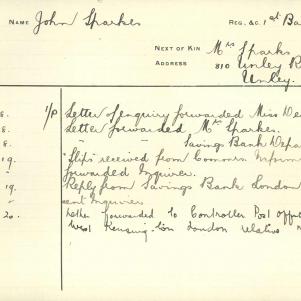 NAME John Sparkes REG. &C. 1st Ba
NEXT OF KIN Mrs Sparks
ADDRESS 810 Unley R
Unley.
8. I/P Letter of enquiry forwarded Miss De
8. Letter forwarded Mrs Sparkes.
8. Savings Bank Depa
19. "Slip" received from Comm
forwarded Inquirer.
19. Reply from Savings Bank London
sent Inquirers
20. Letter forwarded to Controller Post Office
West Kensing-ton London relative